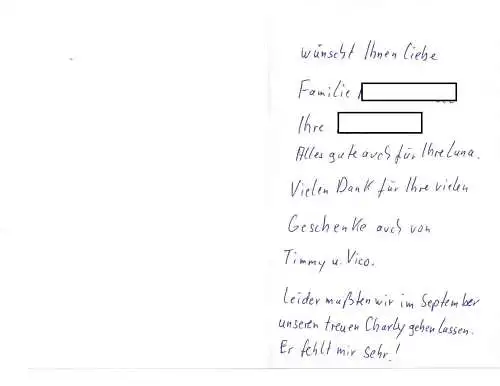 wünscht Ihnen liebe
Familie
Ihre
Alles gute auch für Ihre Luna.
Vielen Dank für Ihre vielen
Geschenke auch von
Timmy u. Vico.
Leider mußten wir im September
unseren treuen Charly gehen lassen.
Er fehlt mir sehr!